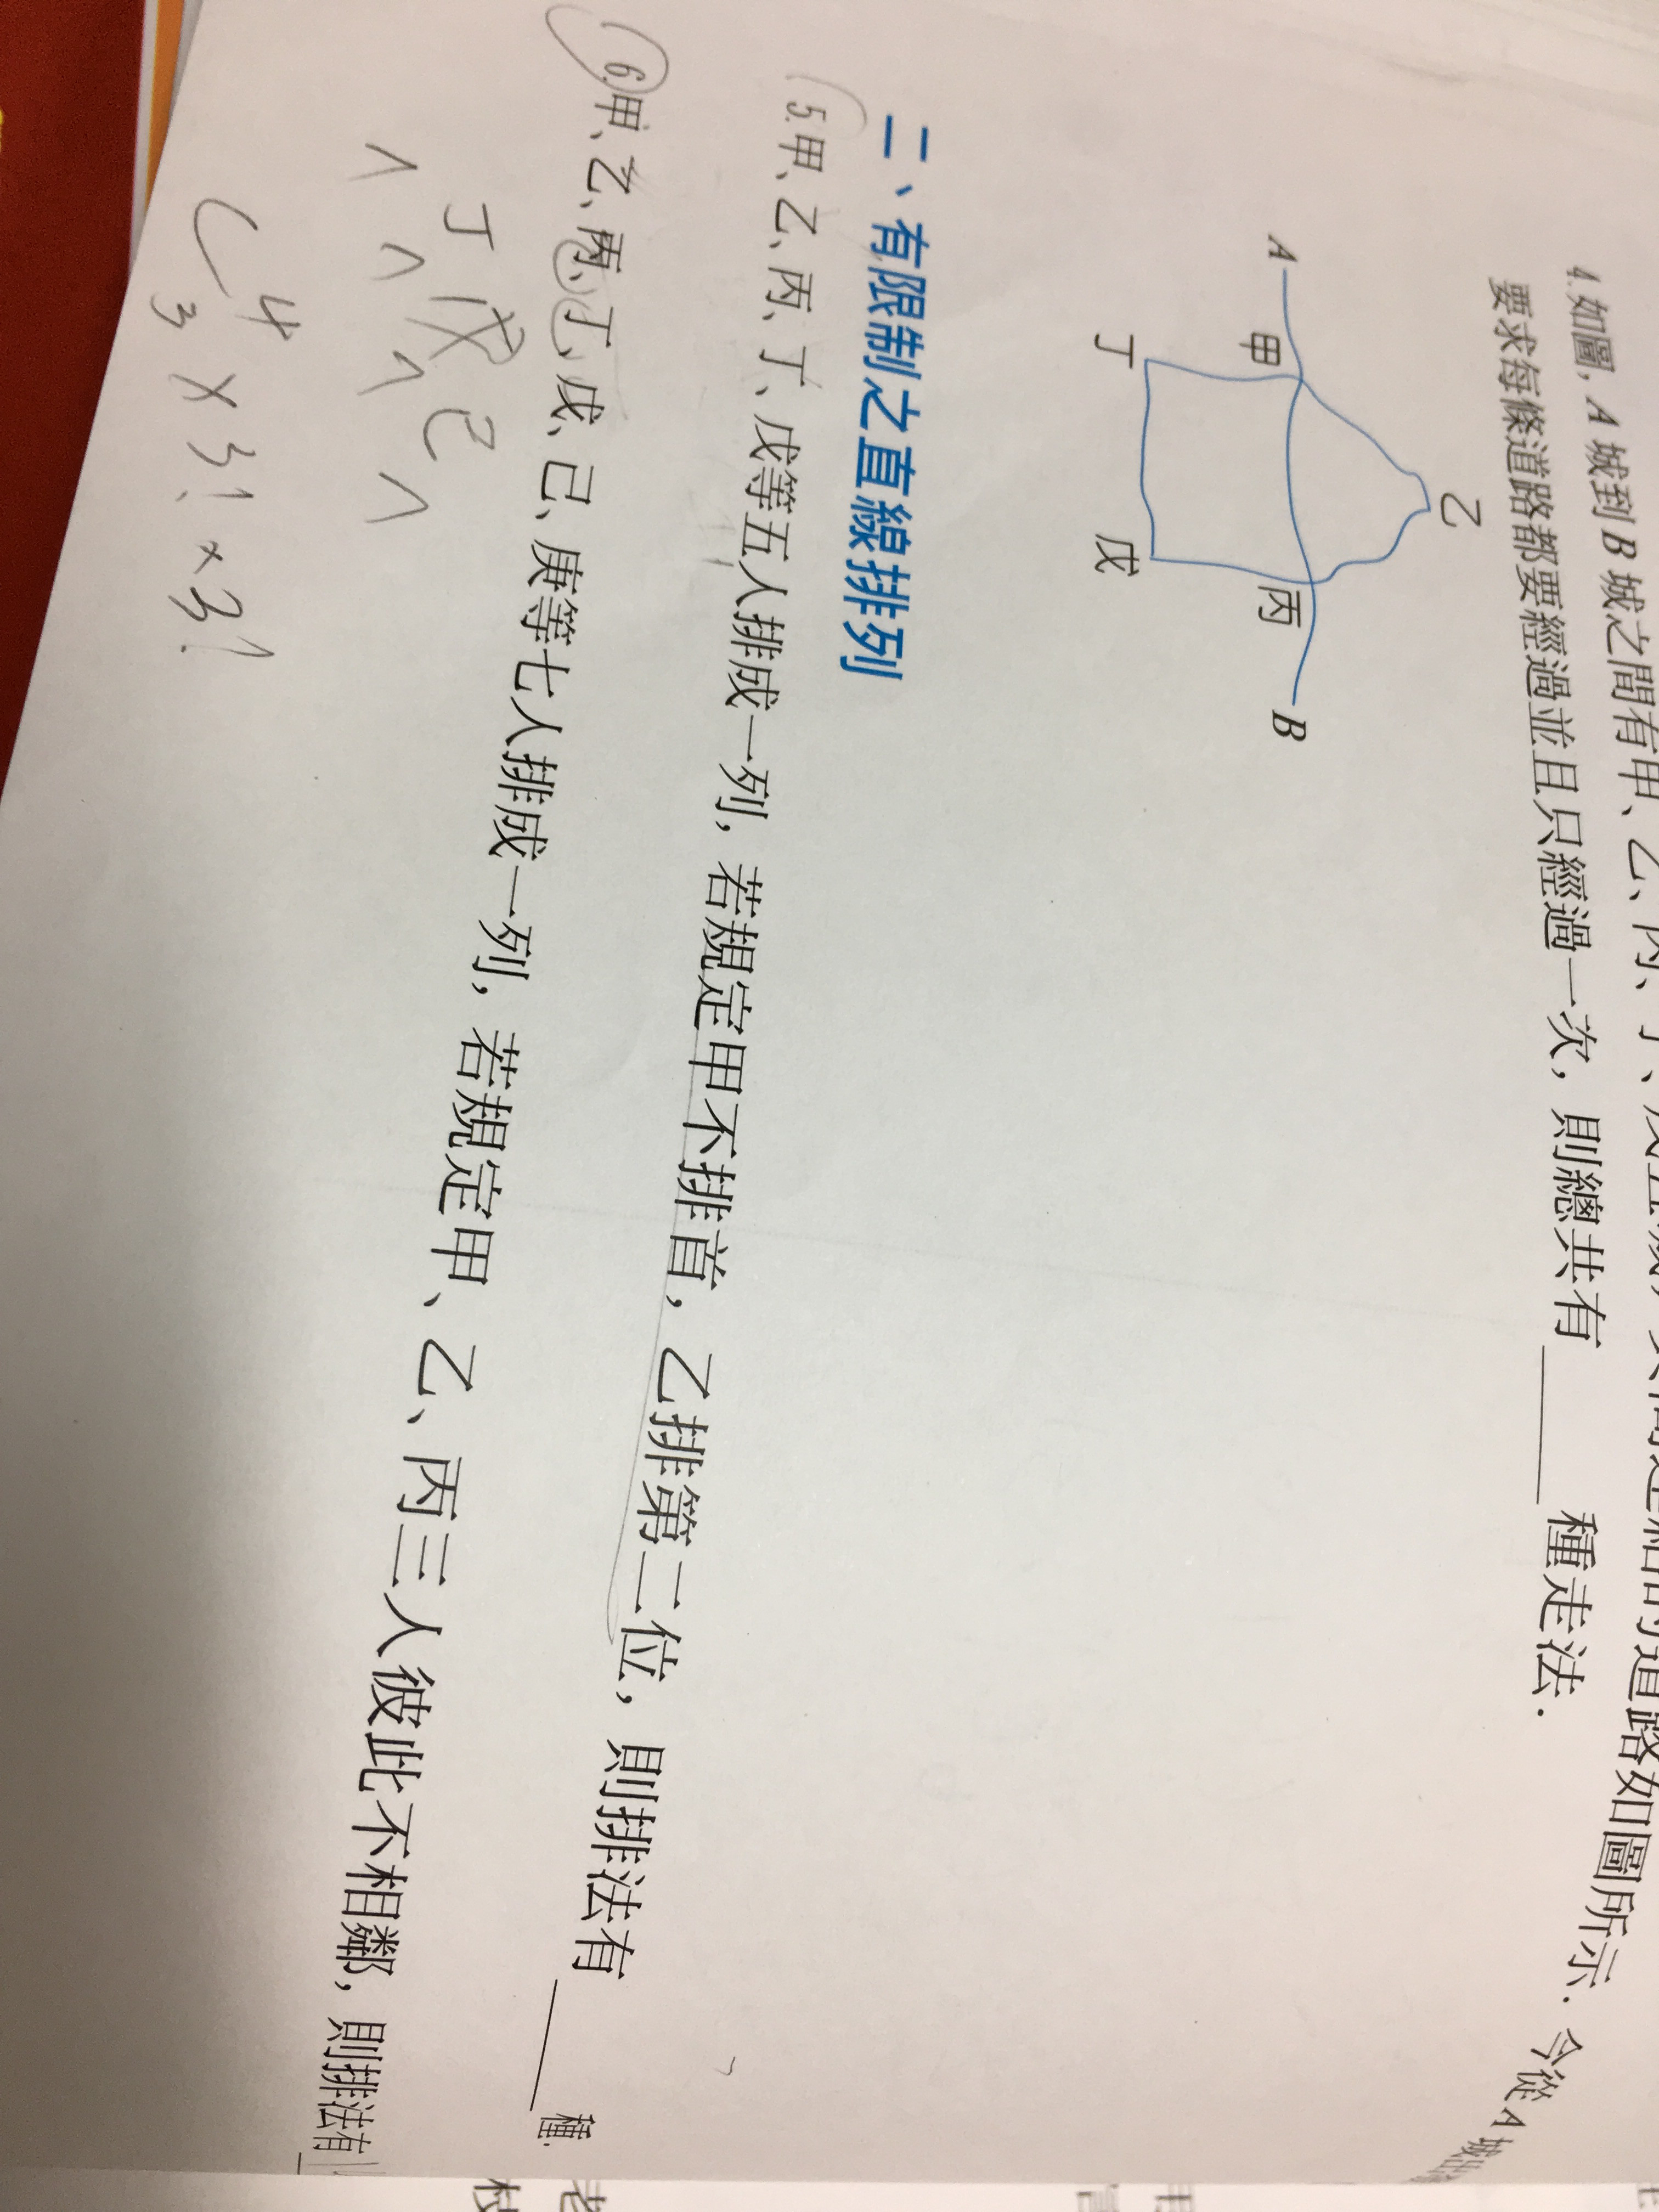 4.如圖, A 城到 B 城之間有甲、乙、丙、丁、戊五城, 其間連結的道路如圖所示. 今從 A 城出
要求每條道路都要經過並且只經過一次, 則總共有______種走法.
乙
A 甲 丙 B
丁 戊
二、有限制之直線排列
5.甲、乙、丙、丁、戊等五人排成一列, 若規定甲不排首, 乙排第二位, 則排法有______種.
6.甲、乙、丙、丁、戊、己、庚等七人排成一列, 若規定甲、乙、丙三人彼此不相鄰, 則排法有
丁 戊 己
^ ^ ^ ^
C 4 3 × 3! × 3!